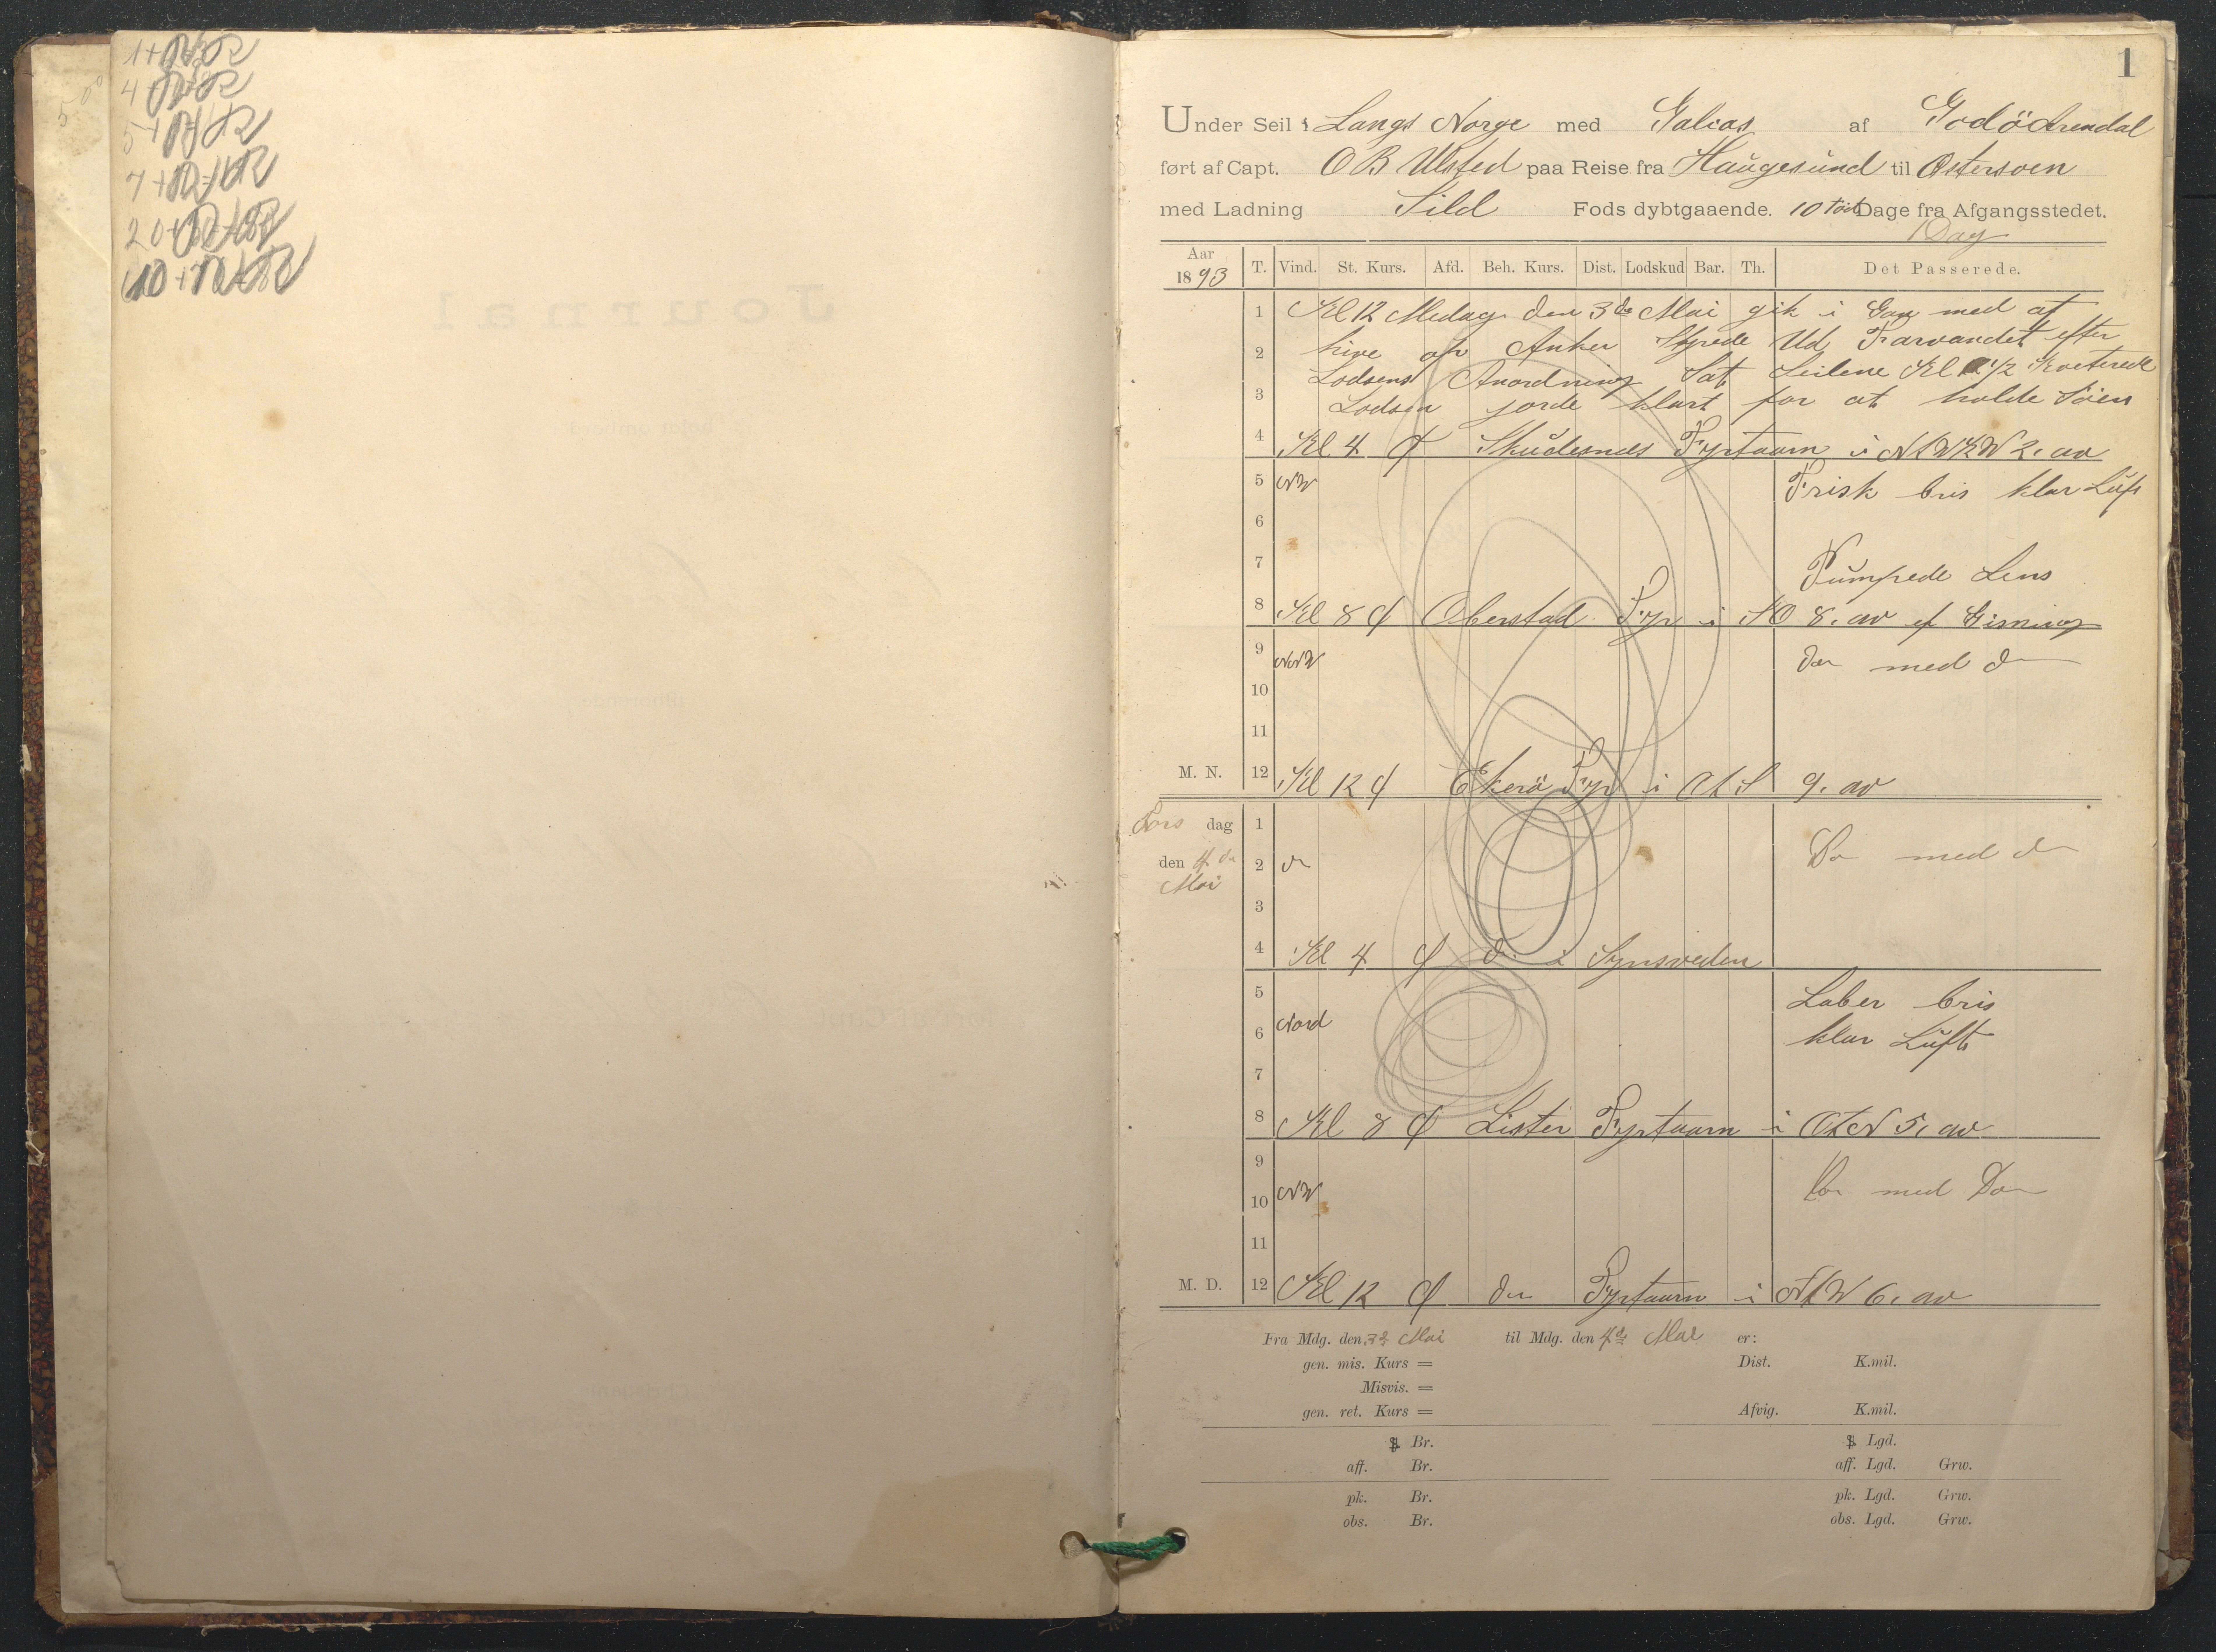 1
Under Seil i Langs Norge med Galias af Godö Arendal
ført af Capt. O B Ulsted paa Reise fra Haugesund til Østersoen
med Ladning Sild Fods dybtgaaende. 10 Fod Dage fra Afgangsstedet.
1 Dag
Aar 1893 T. Vind. St. Kurs. Afd. Beh. Kurs. Dist. Lodskud Bar. Th. Det Passerede.
1 Kl 12 Medag den 3de Mai gik i Gan med at
2 hive op Anker Styrede Ud Farvandet efter
Lodsens Anordning Sat Seilene Kl 1/2 Kviterede
3 Lodsen jorde klart for at holde Söen
4 Kl 4 Skudesnes Fyrtaarn i NtW1/2W 2. av
5 NW Frisk bris klar Luft
6
7 Pumpede Lens
8 Kl 8 Oberstad Fyr i SO 8. av ef Gisning
9 NNW do med do
10
11
M. N. 12 Kl 12 Ekerö Fyr i OtS 9. av
Tors dag 1
den 4de 2 do Do med do
Mai
3
4 Kl 4 do i Synsveden
5 Laber bris
6 Nord klar Luft
7
8 Kl 8 Lister Fyrtaarn i OtN 5. av
9
10 NW Do med Do
11
M. D. 12 Kl 12 do Fyrtaarn i NtW 6. av
Fra Mdg. den 3de Mai til Mdg. den 4de Mai er:
gen. mis. Kurs = Dist. K.mil.
Misvis. =
gen. ret. Kurs = Afvig. K.mil.
Br. Lgd.
aff. Br. aff. Lgd. Grw.
pk. Br. pk. Lgd. Grw.
obs. Br. obs. Lgd. Grw.